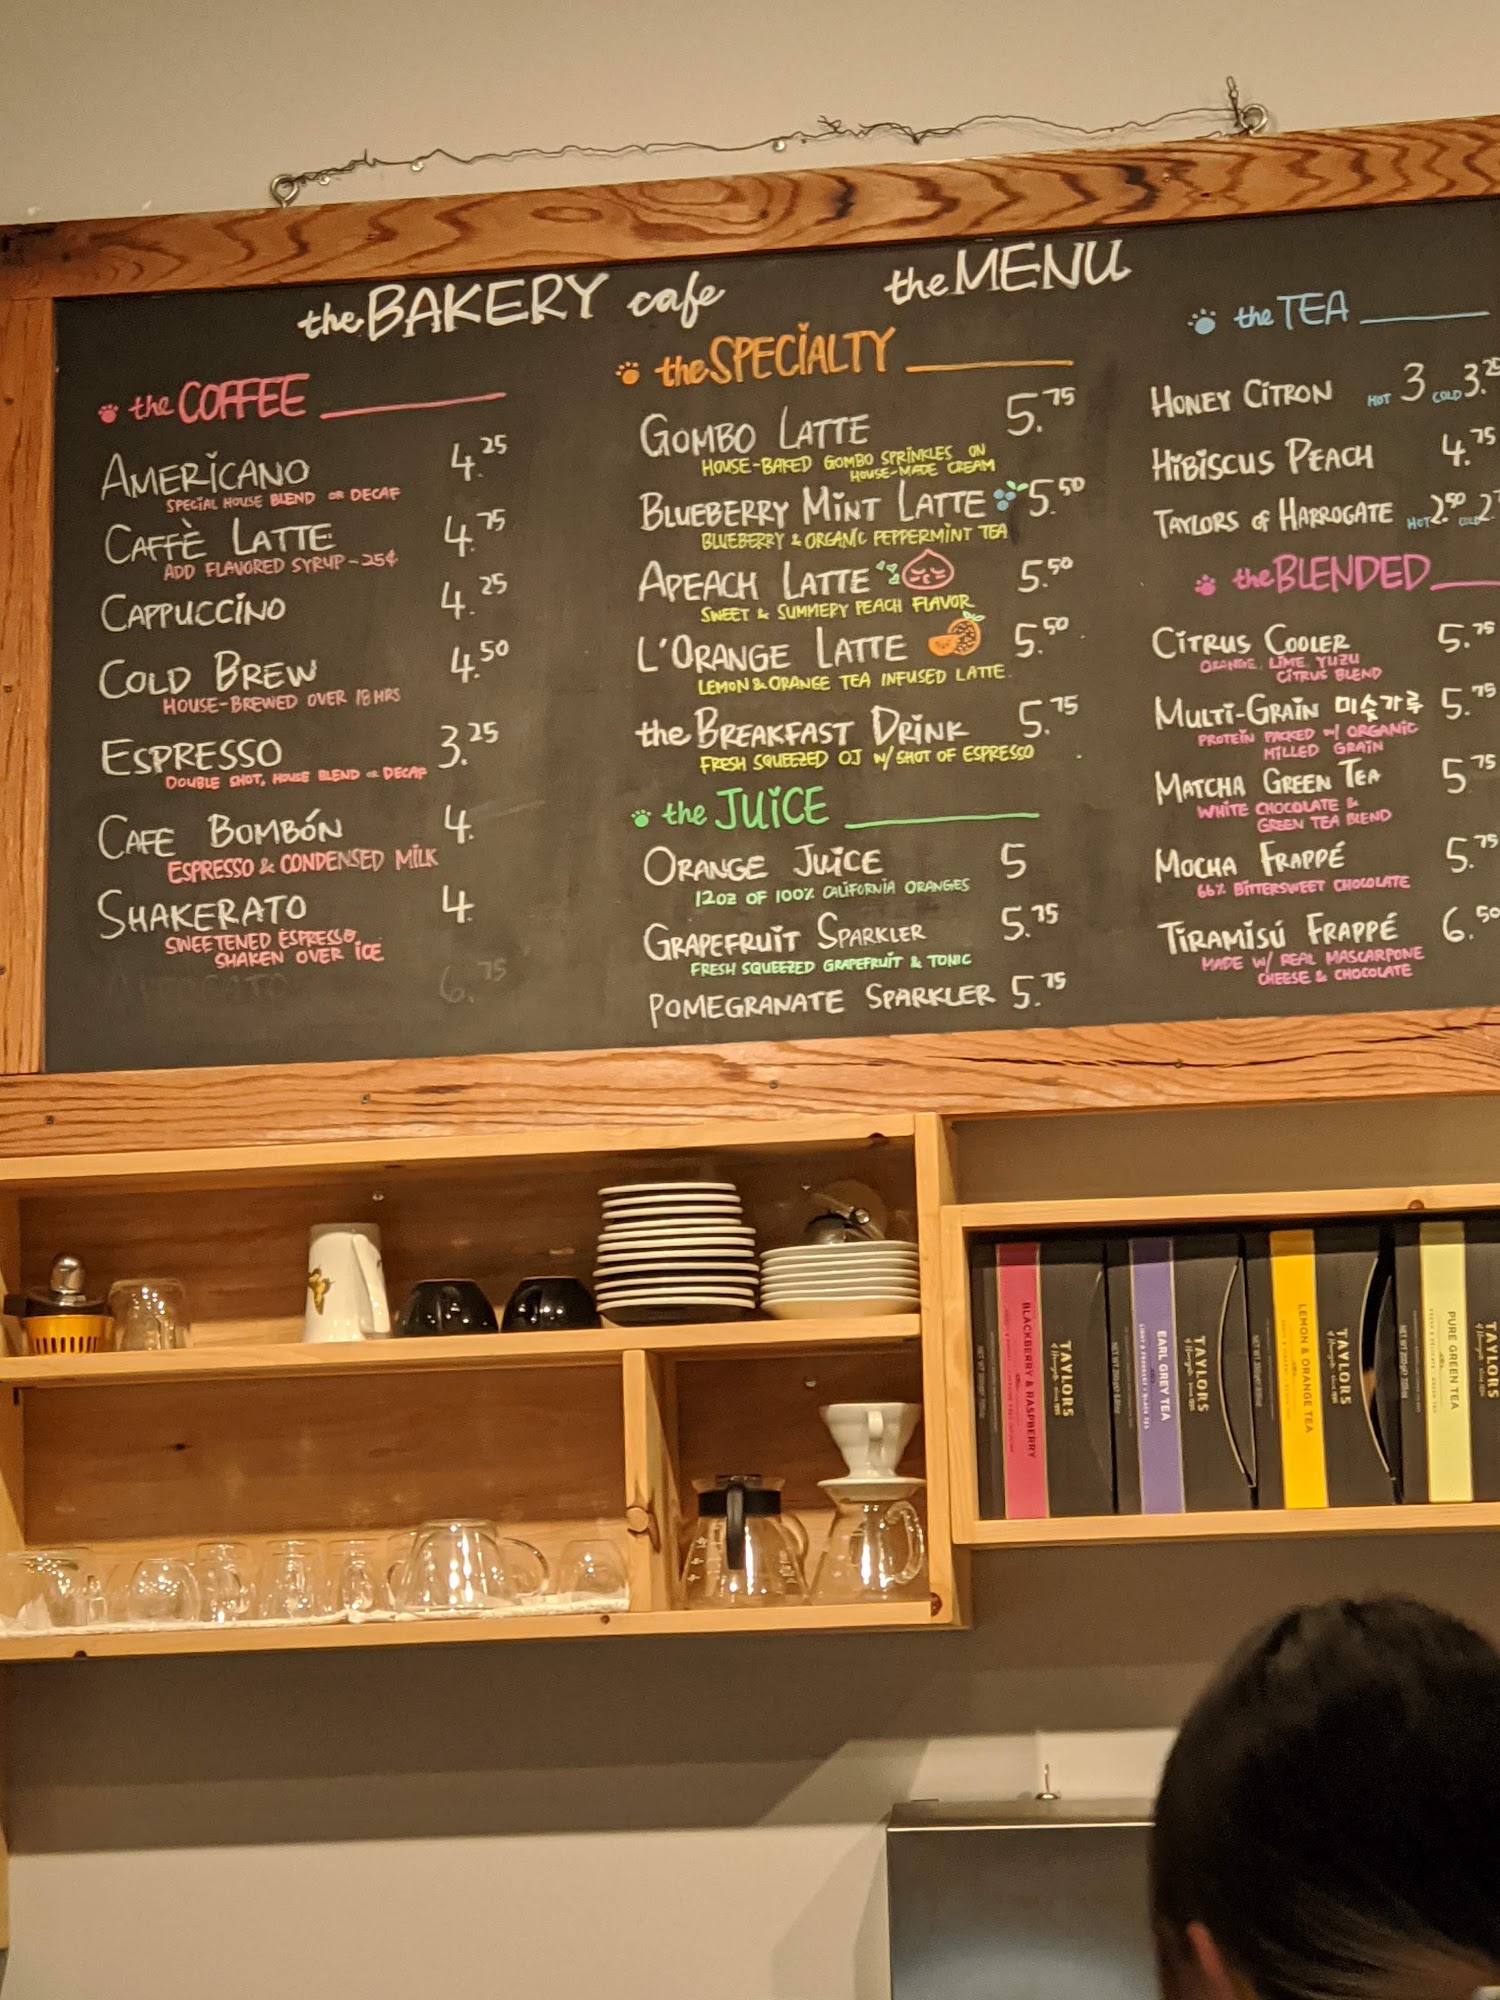 the BAKERY cafe
the MENU
the COFFEE
AMERICANO 4.25
SPECIAL HOUSE BLEND OR DECAF
CAFFÈ LATTE 4.75
ADD FLAVORED SYRUP - 25¢
CAPPUCCINO 4.25
COLD BREW 4.50
HOUSE-BREWED OVER 18 HRS
ESPRESSO 3.25
DOUBLE SHOT, HOUSE BLEND OR DECAF
CAFE BOMBÓN 4.
ESPRESSO & CONDENSED MILK
SHAKERATO 4.
SWEETENED ESPRESSO
SHAKEN OVER ICE
6.75
the SPECIALTY
GOMBO LATTE 5.75
HOUSE-BAKED GOMBO SPRINKLES ON
HOUSE-MADE CREAM
BLUEBERRY MINT LATTE 5.50
BLUEBERRY & ORGANIC PEPPERMINT TEA
APEACH LATTE 5.50
SWEET & SUMMERY PEACH FLAVOR
L'ORANGE LATTE 5.50
LEMON & ORANGE TEA INFUSED LATTE
the BREAKFAST DRINK 5.75
FRESH SQUEEZED OJ W/ SHOT OF ESPRESSO
the JUICE
ORANGE JUICE 5
12OZ OF 100% CALIFORNIA ORANGES
GRAPEFRUIT SPARKLER 5.75
FRESH SQUEEZED GRAPEFRUIT & TONIC
POMEGRANATE SPARKLER 5.75
the TEA
HONEY CITRON HOT 3 COLD 3.25
HIBISCUS PEACH 4.75
TAYLORS of HARROGATE HOT 2.50 COLD 2
the BLENDED
CITRUS COOLER 5.75
ORANGE, LIME, YUZU
CITRUS BLEND
MULTI-GRAIN 미숫가루 5.75
PROTEIN PACKED W/ ORGANIC
MILLED GRAIN
MATCHA GREEN TEA 5.75
WHITE CHOCOLATE &
GREEN TEA BLEND
MOCHA FRAPPÉ 5.75
66% BITTERSWEET CHOCOLATE
TIRAMISÚ FRAPPÉ 6.50
MADE W/ REAL MASCARPONE
CHEESE & CHOCOLATE
BLACKBERRY & RASPBERRY
TAYLORS
of Harrogate
EARL GREY TEA
TAYLORS
of Harrogate
LEMON & ORANGE TEA
TAYLORS
of Harrogate
PURE GREEN TEA
TAYLORS
of Harrogate